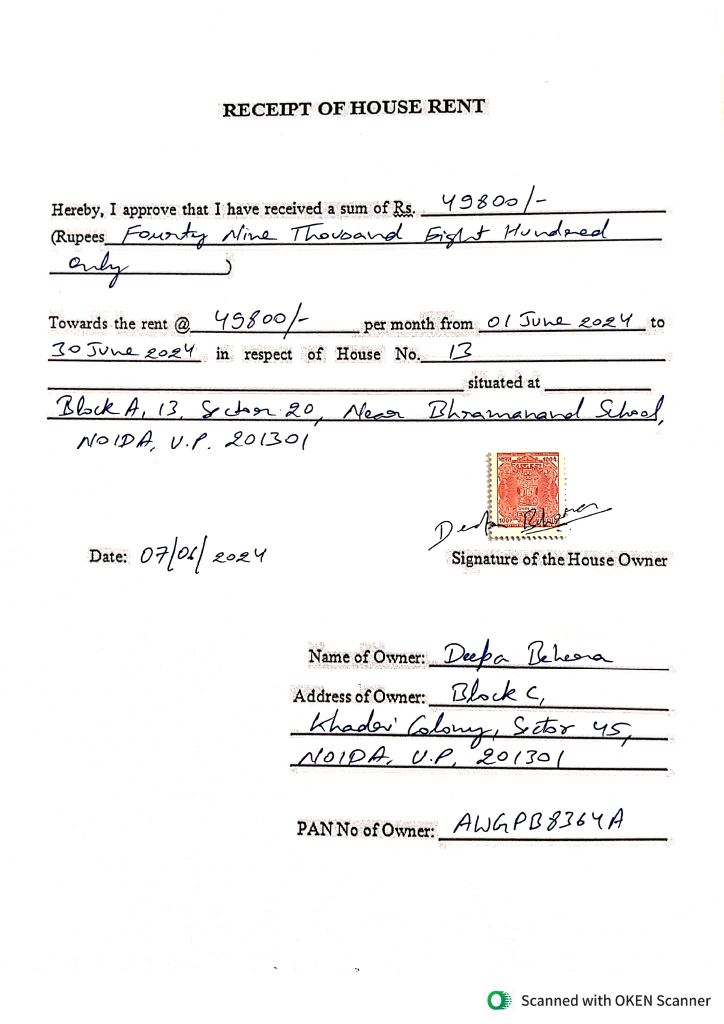 RECEIPT OF HOUSE RENT
Hereby, I approve that I have received a sum of Rs. 49800/-
(Rupees Fourty Nine Thousand Eight Hundred
only )
Towards the rent @ 49800/- per month from 01 June 2024 to
30 June 2024 in respect of House No. 13
situated at
Block A, 13, Sector 20, Near Bhramanand School,
NOIDA, U.P. 201301
Deepa Behera
Date: 07/06/2024
Signature of the House Owner
Name of Owner: Deepa Behera
Address of Owner: Block C,
Khadei Colony, Sector 45,
NOIDA, U.P. 201301
PAN No of Owner: AWGPB8364A
Scanned with OKEN Scanner